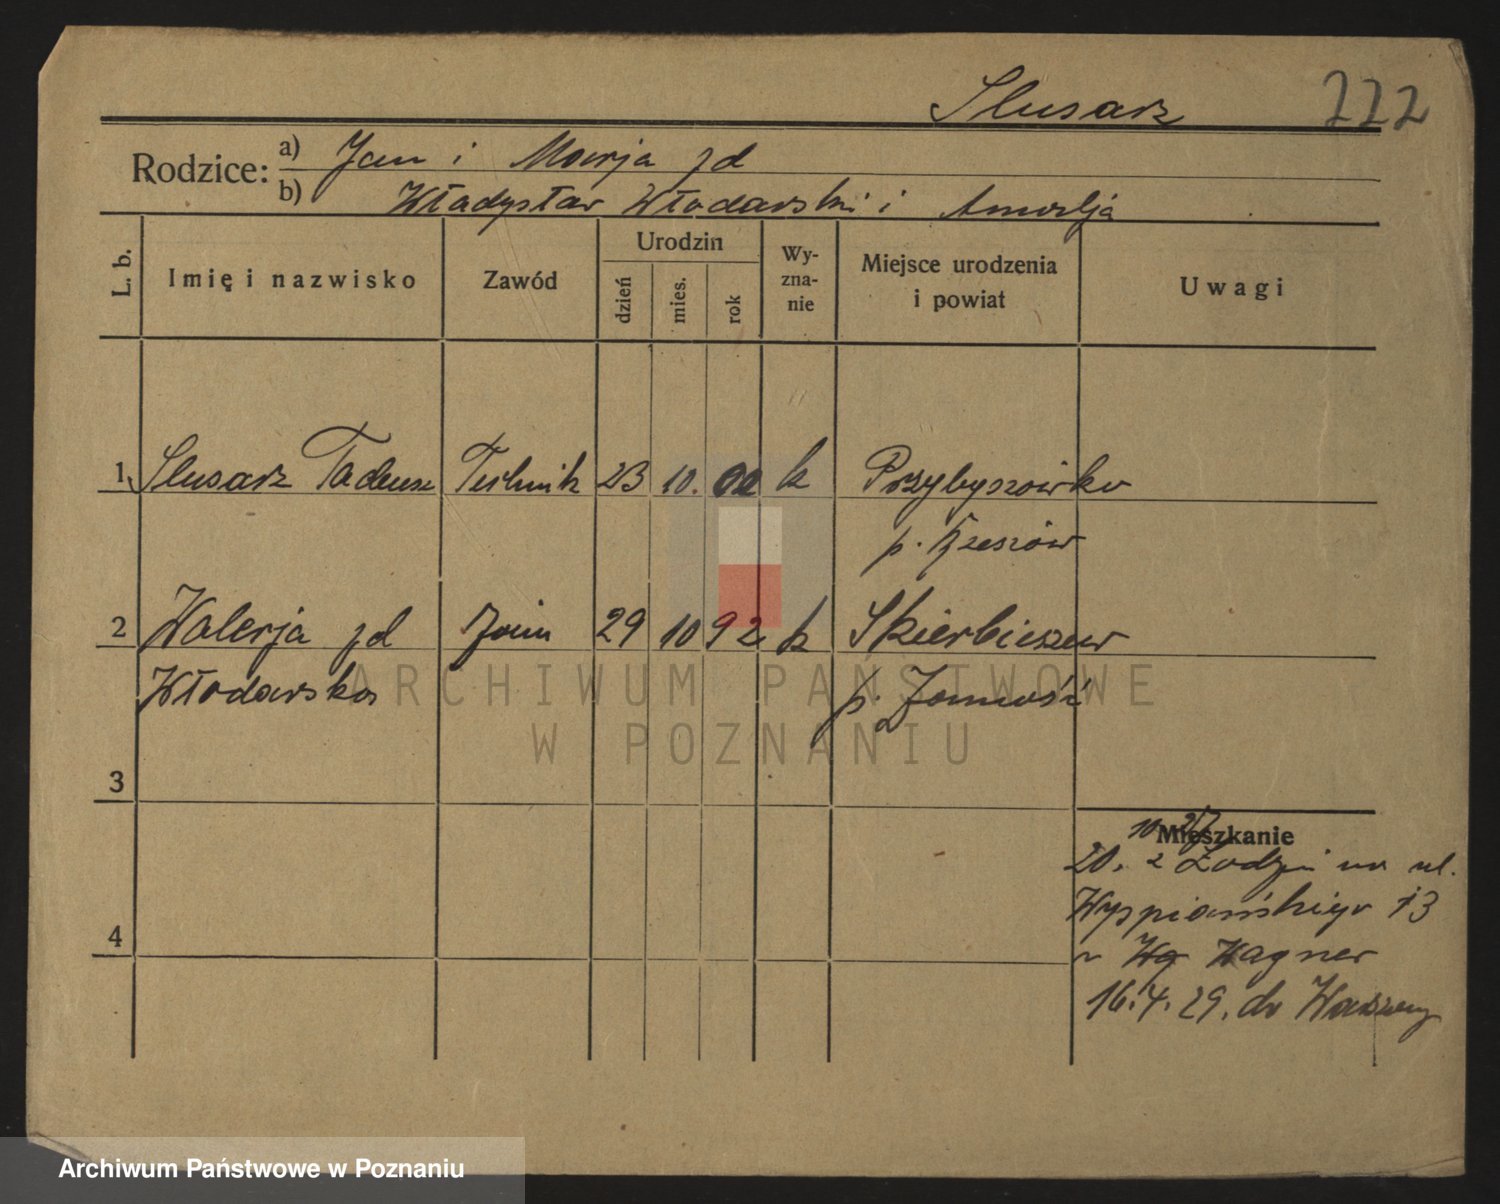 Slusarz 222
Rodzice: a) Jan i Marja jd
b) Władysław Włodarski i Amelja
L. b. Imię i nazwisko Zawód Urodzin dzień mies. rok Wy-zna-nie Miejsce urodzenia i powiat Uwagi
1 Slusarz Tadeusz Technik 23 10. 02 k Przybyszówka
p. Rzeszów
2 Walerja jd żona 29 10 92 k Skierbieszów
Włodarska p. Zamość
3
Mieszkanie
10 27
20. z Łodzi na ul.
Wyspiańskiego 13
Wagner
16.4.29. do Warszawy
4
ARCHIWUM PAŃSTWOWE
W POZNANIU
Archiwum Państwowe w Poznaniu